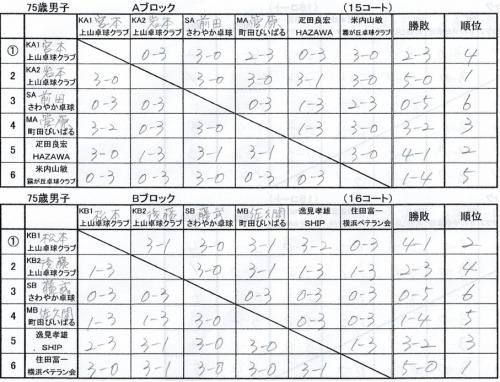 75歳男子 Aブロック (15コート)
KA1 宮本 上山卓球クラブ KA2 岩本 上山卓球クラブ SA 前田 さわやか卓球 MA 菅原 町田びいばる 疋田良宏 HAZAWA 米内山敏 霧が丘卓球クラブ 勝敗 順位
① KA1 宮本 上山卓球クラブ 0-3 3-0 2-3 0-3 3-0 2-3 4
2 KA2 岩本 上山卓球クラブ 3-0 3-0 3-0 3-1 3-0 5-0 1
3 SA 前田 さわやか卓球 0-3 0-3 0-3 1-3 2-3 0-5 6
4 MA 菅原 町田びいばる 3-2 0-3 3-0 1-3 3-0 3-2 3
5 疋田良宏 HAZAWA 3-0 1-3 3-1 3-1 3-0 4-1 2
6 米内山敏 霧が丘卓球クラブ 0-3 0-3 3-2 0-3 0-3 1-4 5
75歳男子 Bブロック (16コート)
KB1 松本 上山卓球クラブ KB2 後藤 上山卓球クラブ SB さわやか卓球 MB 佐久間 町田びいばる 逸見孝雄 SHIP 住田富一 横浜ベテラン会 勝敗 順位
① KB1 松本 上山卓球クラブ 3-1 3-0 3-1 3-2 0-3 4-1 2
2 KB2 後藤 上山卓球クラブ 1-3 3-0 3-1 1-3 1-3 2-3 4
3 SB さわやか卓球 0-3 0-3 0-3 0-3 0-3 0-5 6
4 MB 佐久間 町田びいばる 1-3 1-3 3-0 0-3 0-3 1-4 5
5 逸見孝雄 SHIP 2-3 3-1 3-0 3-0 1-3 3-2 3
6 住田富一 横浜ベテラン会 3-0 3-1 3-0 3-0 3-1 5-0 1